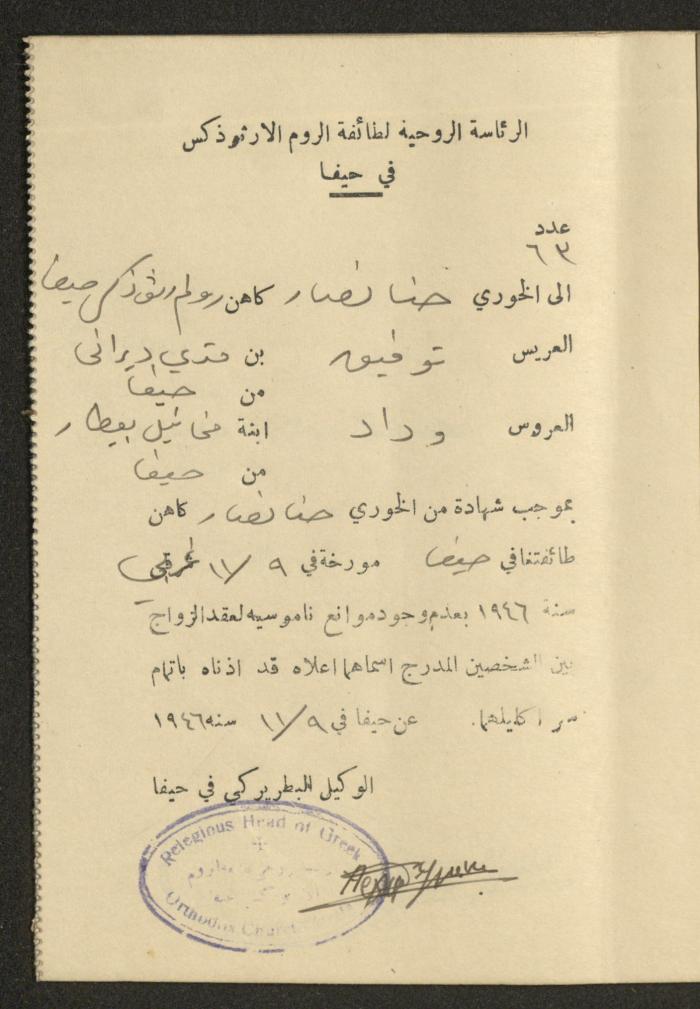 الرئاسة الروحية لطائفة الروم الارثوذكس
في حيفا
عدد
٦٣
الى الخوري حنا نصار كاهن روم ارثوذكس حيفا
العريس توفيق بن متري ديراني
من حيفا
العروس وداد ابنة مخائيل بيطار
من حيفا
بموجب شهادة من الخوري حنا نصار كاهن
طائفتنا في حيفا مورخة في ٩ / ١١ شرقي
سنة ١٩٤٦ بعدم وجود موانع ناموسيه لعقد الزواج
بين الشخصين المدرج اسماهما اعلاه قد اذناه باتمام
سر اكليلهما. عن حيفا في ٩ / ١١ سنه ١٩٤٦
الوكيل البطريركي في حيفا
Relegious Head of Greek
Orthodox Church